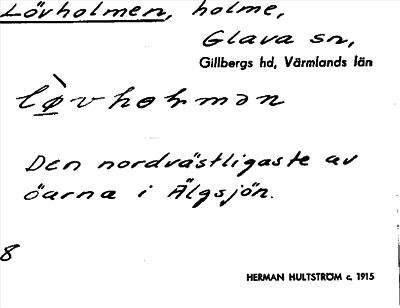 Lövholmen, holme,
Glava sn,
Gillbergs hd, Värmlands län
lø̀vhoɫmən
Den nordvästligaste av
öarna i Älgsjön.
8
HERMAN HULTSTRÖM c. 1915